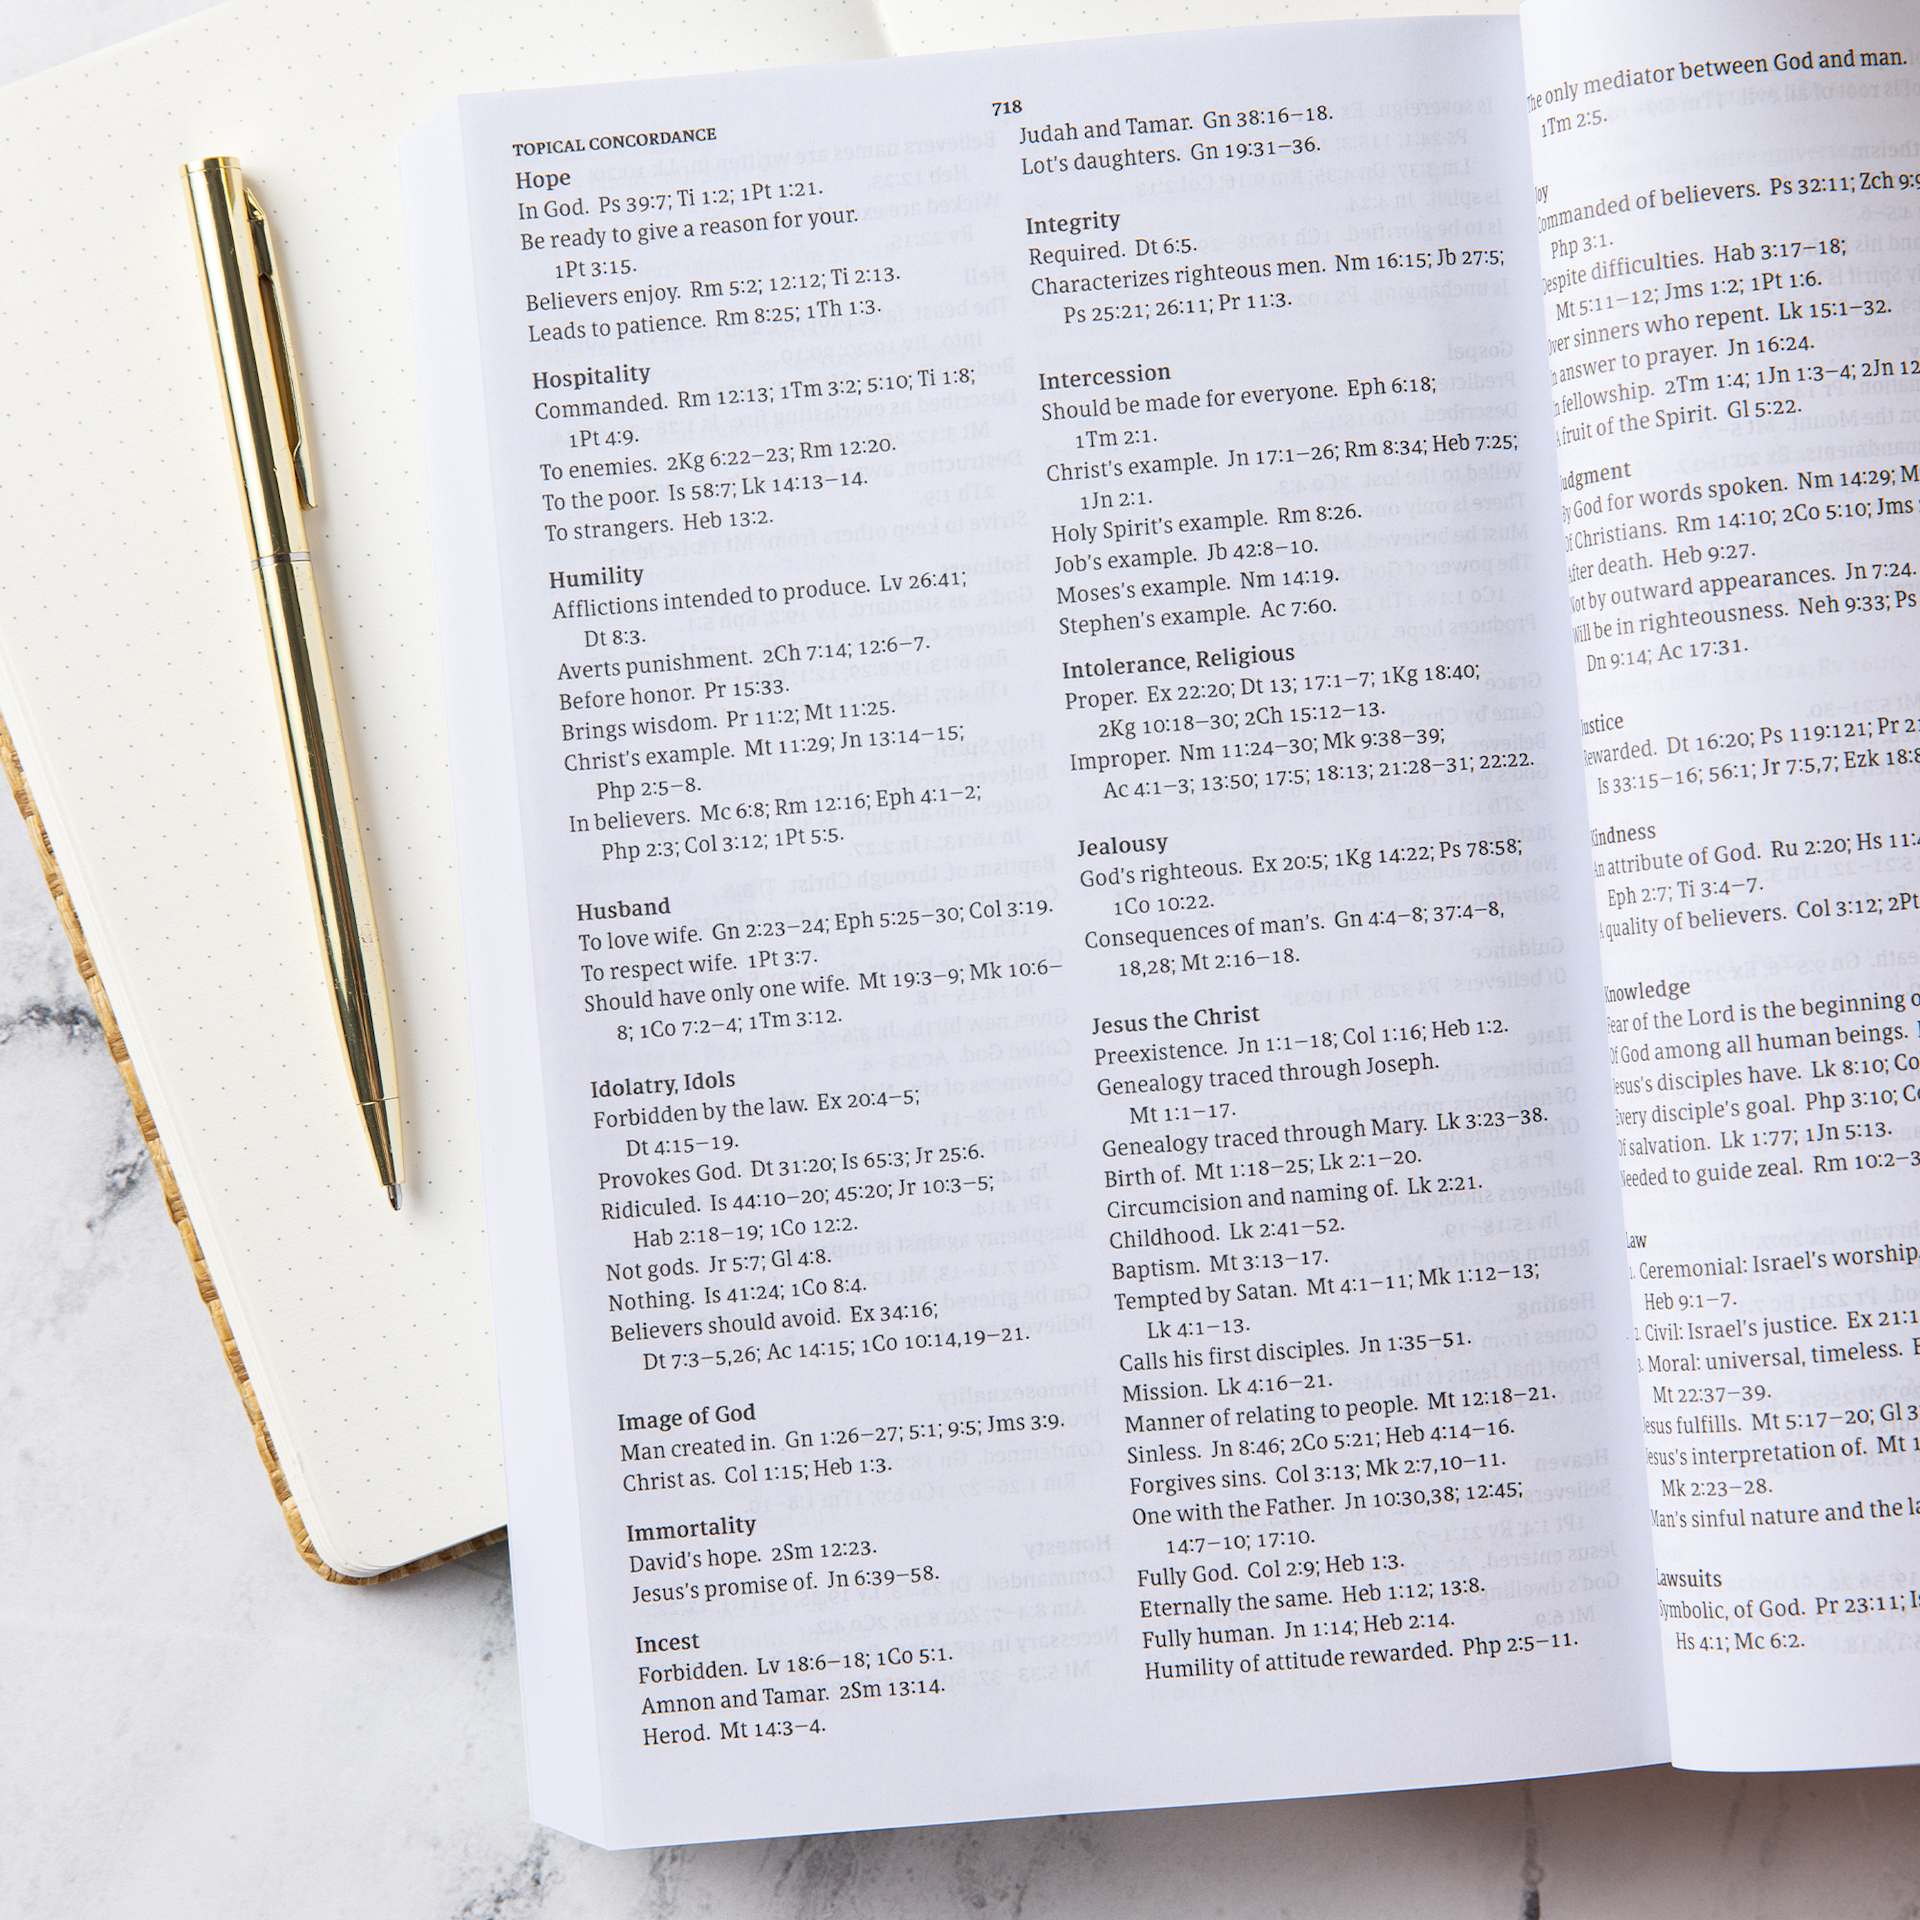 718
TOPICAL CONCORDANCE
Hope
In God. Ps 39:7; Ti 1:2; 1Pt 1:21.
Be ready to give a reason for your.
1Pt 3:15.
Believers enjoy. Rm 5:2; 12:12; Ti 2:13.
Leads to patience. Rm 8:25; 1Th 1:3.
Hospitality
Commanded. Rm 12:13; 1Tm 3:2; 5:10; Ti 1:8;
1Pt 4:9.
To enemies. 2Kg 6:22–23; Rm 12:20.
To the poor. Is 58:7; Lk 14:13–14.
To strangers. Heb 13:2.
Humility
Afflictions intended to produce. Lv 26:41;
Dt 8:3.
Averts punishment. 2Ch 7:14; 12:6–7.
Before honor. Pr 15:33.
Brings wisdom. Pr 11:2; Mt 11:25.
Christ's example. Mt 11:29; Jn 13:14–15;
Php 2:5–8.
In believers. Mc 6:8; Rm 12:16; Eph 4:1–2;
Php 2:3; Col 3:12; 1Pt 5:5.
Husband
To love wife. Gn 2:23–24; Eph 5:25–30; Col 3:19.
To respect wife. 1Pt 3:7.
Should have only one wife. Mt 19:3–9; Mk 10:6–
8; 1Co 7:2–4; 1Tm 3:12.
Idolatry, Idols
Forbidden by the law. Ex 20:4–5;
Dt 4:15–19.
Provokes God. Dt 31:20; Is 65:3; Jr 25:6.
Ridiculed. Is 44:10–20; 45:20; Jr 10:3–5;
Hab 2:18–19; 1Co 12:2.
Not gods. Jr 5:7; Gl 4:8.
Nothing. Is 41:24; 1Co 8:4.
Believers should avoid. Ex 34:16;
Dt 7:3–5,26; Ac 14:15; 1Co 10:14,19–21.
Image of God
Man created in. Gn 1:26–27; 5:1; 9:5; Jms 3:9.
Christ as. Col 1:15; Heb 1:3.
Immortality
David's hope. 2Sm 12:23.
Jesus's promise of. Jn 6:39–58.
Incest
Forbidden. Lv 18:6–18; 1Co 5:1.
Amnon and Tamar. 2Sm 13:14.
Herod. Mt 14:3–4.
Judah and Tamar. Gn 38:16–18.
Lot's daughters. Gn 19:31–36.
Integrity
Required. Dt 6:5.
Characterizes righteous men. Nm 16:15; Jb 27:5;
Ps 25:21; 26:11; Pr 11:3.
Intercession
Should be made for everyone. Eph 6:18;
1Tm 2:1.
Christ's example. Jn 17:1–26; Rm 8:34; Heb 7:25;
1Jn 2:1.
Holy Spirit's example. Rm 8:26.
Job's example. Jb 42:8–10.
Moses's example. Nm 14:19.
Stephen's example. Ac 7:60.
Intolerance, Religious
Proper. Ex 22:20; Dt 13; 17:1–7; 1Kg 18:40;
2Kg 10:18–30; 2Ch 15:12–13.
Improper. Nm 11:24–30; Mk 9:38–39;
Ac 4:1–3; 13:50; 17:5; 18:13; 21:28–31; 22:22.
Jealousy
God's righteous. Ex 20:5; 1Kg 14:22; Ps 78:58;
1Co 10:22.
Consequences of man's. Gn 4:4–8; 37:4–8,
18,28; Mt 2:16–18.
Jesus the Christ
Preexistence. Jn 1:1–18; Col 1:16; Heb 1:2.
Genealogy traced through Joseph.
Mt 1:1–17.
Genealogy traced through Mary. Lk 3:23–38.
Birth of. Mt 1:18–25; Lk 2:1–20.
Circumcision and naming of. Lk 2:21.
Childhood. Lk 2:41–52.
Baptism. Mt 3:13–17.
Tempted by Satan. Mt 4:1–11; Mk 1:12–13;
Lk 4:1–13.
Calls his first disciples. Jn 1:35–51.
Mission. Lk 4:16–21.
Manner of relating to people. Mt 12:18–21.
Sinless. Jn 8:46; 2Co 5:21; Heb 4:14–16.
Forgives sins. Col 3:13; Mk 2:7,10–11.
One with the Father. Jn 10:30,38; 12:45;
14:7–10; 17:10.
Fully God. Col 2:9; Heb 1:3.
Eternally the same. Heb 1:12; 13:8.
Fully human. Jn 1:14; Heb 2:14.
Humility of attitude rewarded. Php 2:5–11.
The only mediator between God and man.
1Tm 2:5.
Joy
Commanded of believers. Ps 32:11; Zch 9:9
Php 3:1.
Despite difficulties. Hab 3:17–18;
Mt 5:11–12; Jms 1:2; 1Pt 1:6.
Over sinners who repent. Lk 15:1–32.
answer to prayer. Jn 16:24.
fellowship. 2Tm 1:4; 1Jn 1:3–4; 2Jn 12
A fruit of the Spirit. Gl 5:22.
Judgment
By God for words spoken. Nm 14:29;
Of Christians. Rm 14:10; 2Co 5:10; Jms
After death. Heb 9:27.
Not by outward appearances. Jn 7:24.
Will be in righteousness. Neh 9:33; Ps
Dn 9:14; Ac 17:31.
Justice
Rewarded. Dt 16:20; Ps 119:121; Pr
Is 33:15–16; 56:1; Jr 7:5,7; Ezk 18:8
Kindness
An attribute of God. Ru 2:20; Hs
Eph 2:7; Ti 3:4–7.
A quality of believers. Col 3:12; 2Pt
Knowledge
Fear of the Lord is the beginning
Of God among all human beings.
Jesus's disciples have. Lk 8:10;
Every disciple's goal. Php 3:10;
Of salvation. Lk 1:77; 1Jn 5:13.
Needed to guide zeal. Rm
Law
1. Ceremonial: Israel's worship.
Heb 9:1–7.
2. Civil: Israel's justice. Ex
3. Moral: universal, timeless.
Mt 22:37–39.
Jesus fulfills. Mt 5:17–20; Gl
Jesus's interpretation of. Mt
Mk 2:23–28.
Man's sinful nature and the
Lawsuits
Symbolic, of God. Pr 23:11;
Hs 4:1; Mc 6:2.